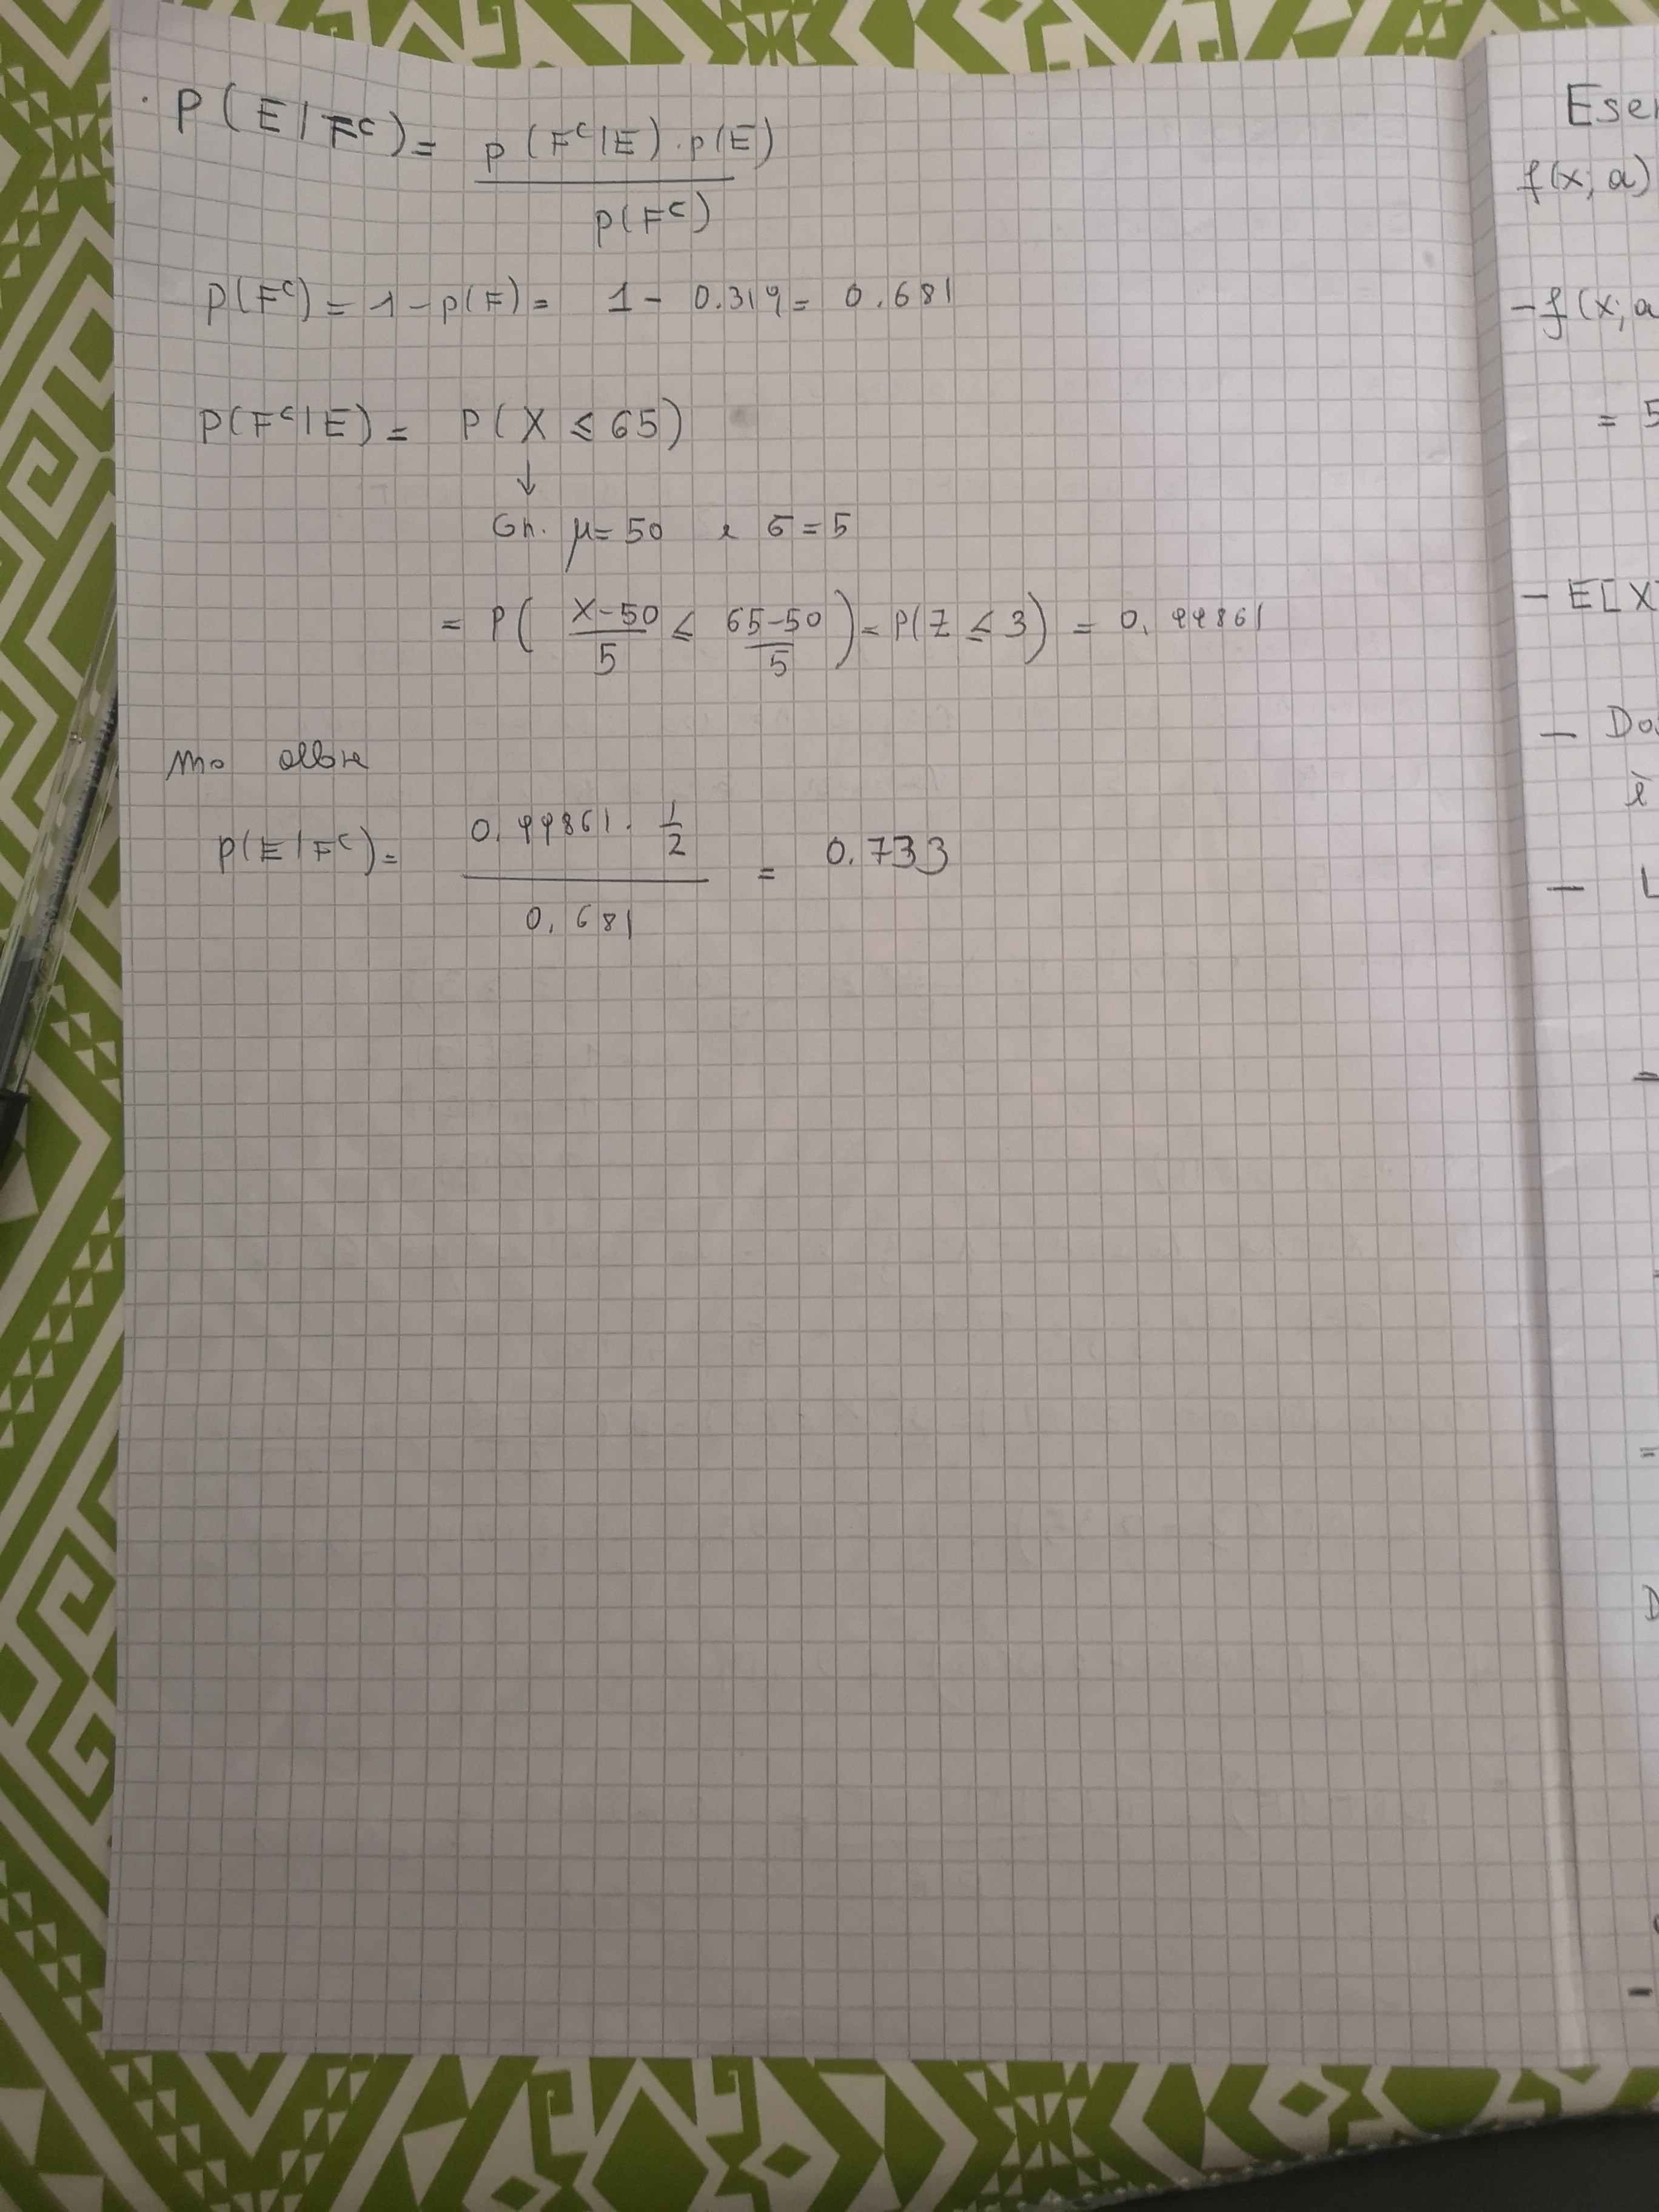 · P(E|Fᶜ) = P(Fᶜ|E)·P(E)
P(Fᶜ)
P(Fᶜ) = 1 - P(F) = 1 - 0.319 = 0.681
P(Fᶜ|E) = P(X ≤ 65)
↓
μ = 50 e σ = 5
= P( X-50 / 5 ≤ 65-50 / 5 ) = P(Z ≤ 3) = 0.99861
P(E|Fᶜ) = 0.99861 · 1/2 = 0.733
0.681
Eser
f(x; a)
- f(x; a
= 5
- E[X
- Do
è
- L
=
=